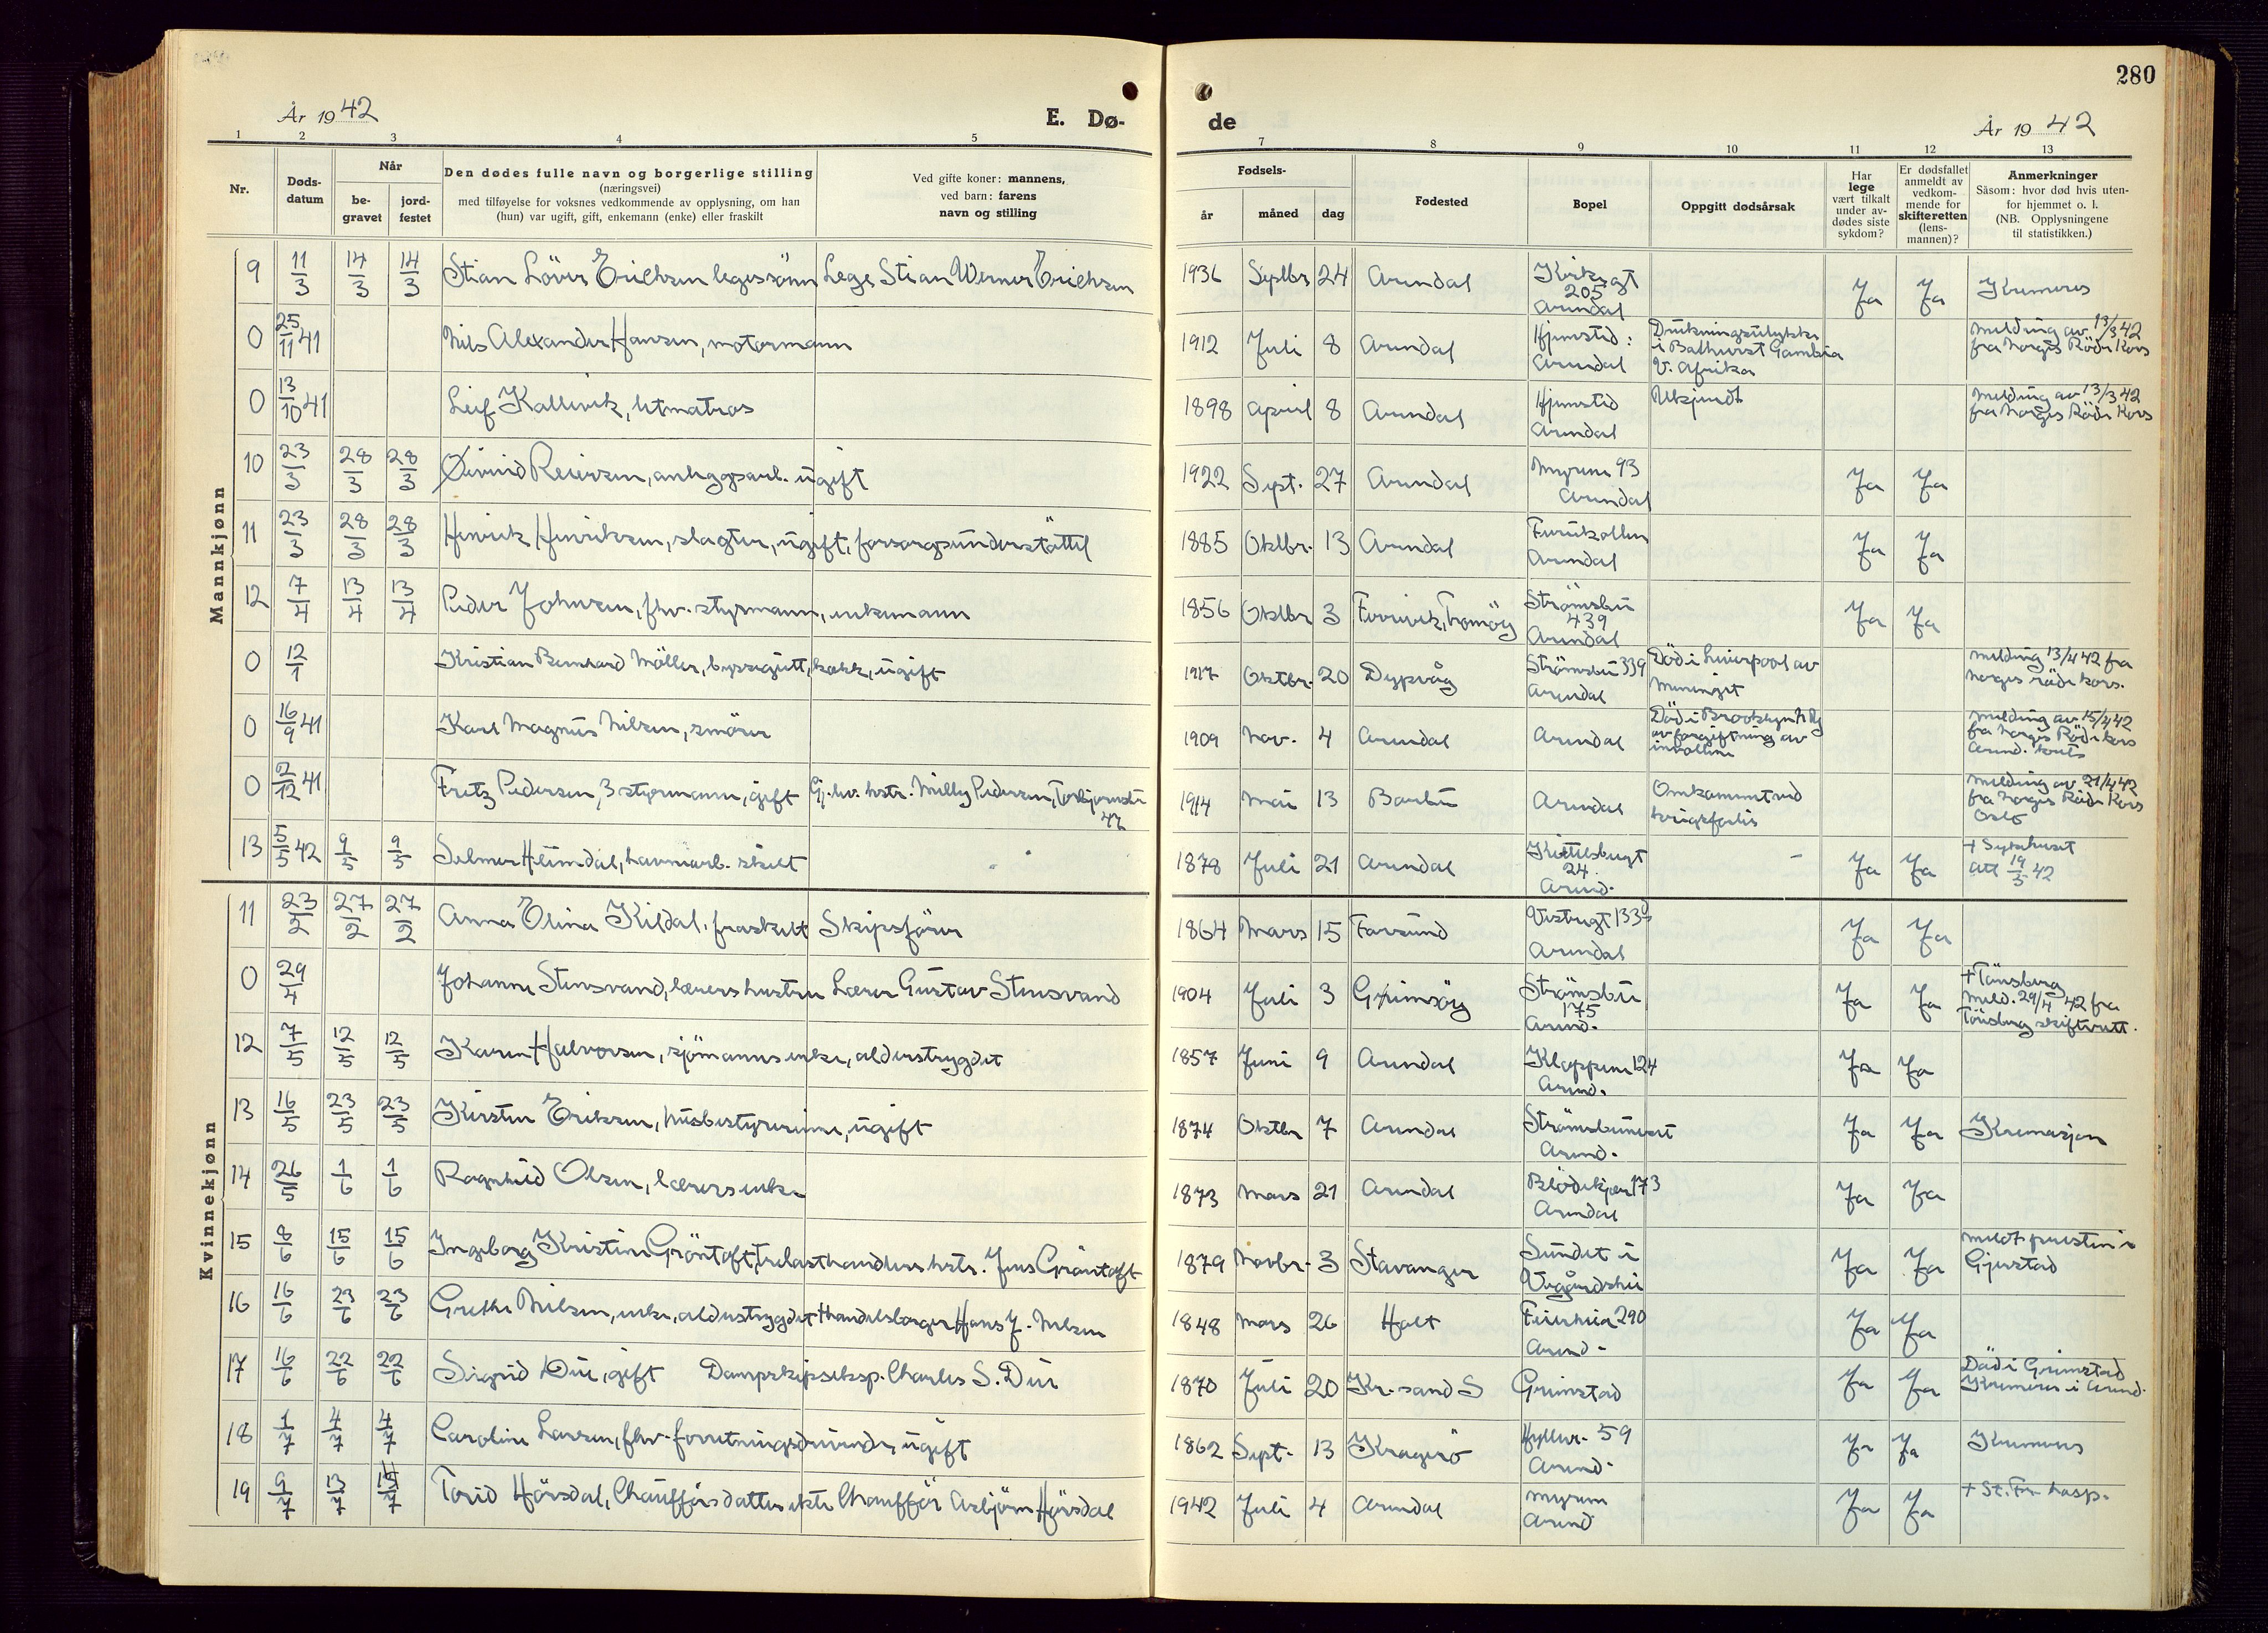 280
År 1942
E. Dø-
de
År 1942
1 2 3 4 5 7 8 9 10 11 12 13
Nr.
Døds-
datum
Når
be-
gravet
jord-
festet
Den dødes fulle navn og borgerlige stilling
(næringsvei)
med tilføyelse for voksnes vedkommende av opplysning, om han
(hun) var ugift, gift, enkemann (enke) eller fraskilt
Ved gifte koner: mannens,
ved barn: farens
navn og stilling
Fødsels-
år måned dag
Fødested
Bopel
Oppgitt dødsårsak
Har
lege
vært tilkalt
under av-
dødes siste
sykdom?
Er dødsfallet
anmeldt av
vedkom-
mende for
skifteretten
(lens-
mannen)?
Anmerkninger
Såsom: hvor død hvis uten-
for hjemmet o. l.
(NB. Opplysningene
til statistikken.)
Mannkjønn
9 11/3 14/3 14/3 Stian Erichsen legessønn Lege Stian Werner Erichsen 1936 Septbr 24 Arendal
205
Arendal Ja Ja Kremeres
0 25/11 41 Nils Alexander Hansen, motormann 1912 Juli 8 Arendal Hjemsted:
Arendal
Drukningsulykke
i Bathurst Gambia
V. Afrika
Melding av 13/3 42
fra Norges Röde Kors
0 13/10 41 Leif Kallevik, letmatros 1898 April 8 Arendal Hjemsted
Arendal
Ukjendt
Melding av 13/3 42
fra Norges Röde Kors
10 23/3 28/3 28/3 Øivind Reiersen, anleggsarb. ugift 1922 Sept. 27 Arendal Myrene 93
Arendal Ja Ja
11 23/3 28/3 28/3 Henrik Henriksen, slagter, ugift, forsorgsunderstöttet 1885 Oktbr. 13 Arendal Furukollen
Arendal Ja Ja
12 7/4 13/4 13/4 Peder Johnsen, fhv. styrmann, enkemann 1856 Oktbr 3 Tromöy Strömsbu
439
Arendal Ja Ja
0 12/1 Kristian Bernhard Möller, byssegutt, kokk, ugift 1917 Oktbr. 20 Dypvåg Strömsbu 339
Arendal
Död i Liverpool av
Meningit
Melding 13/4 42 fra
Norges röde kors.
0 16/9 41 Karl Magnus Nilsen, smörer 1909 Nov. 4 Arendal Arendal
Död i Brooklyn N Y
av forgiftning av
Melding av 15/4 42
fra Norges Röde Kors
0 2/12 41 Fritz Pedersen, 3 styrmann, gift Gj.hv. hstr. Milly Pedersen, Torbjörnsbu
47 1914 Mai 13 Barbu Arendal
Omkommet ved
krigsforlis
Melding av 21/4 42
fra Norges Röde Kors
Oslo
13 5/5 42 9/5 9/5 Selmer Heimdal, havnearb. skilt 1878 Juli 21 Arendal Kittelsbugt
24
Arend. Ja Ja
+ Sykehuset
Att 19/5 42
Kvinnekjønn
11 23/2 27/2 27/2 Anna Elina Kildal, fraskilt Skipsförer 1864 Mars 15 Farsund Vestregt 133
Arendal Ja Ja
0 29/4 Johanne Stensvand, lærers hustru Lærer Gustav Stensvand 1904 Juli 3 Grimsöy Strömsbu
175
Arend. Ja Ja
+ Tönsberg
Meld. 29/4 42 fra
Tönsberg skifterett.
12 7/5 12/5 12/5 Karen Halvorsen, sjömanns enke, alderstrygdet 1857 Juni 9 Arendal Kloppene 124
Arend. Ja Ja
13 16/5 23/5 23/5 Kirsten Eriksen, husbestyrerinne, ugift 1874 Oktbr 7 Arendal
Arend. Ja Ja Kremasjon
14 26/5 1/6 1/6 Ragnhild Olsen, lærers enke 1873 Mars 21 Arendal Blödekjær 173
Arendal Ja Ja
15 8/6 15/6 15/6 Ingeborg Kristine Gröntoft, trelasthandlers hstr. Jens Gröntoft 1879 Novbr. 3 Stavanger Sundet i
Vegårdshei Ja Ja
Meldt presten i
Gjerstad
16 16/6 23/6 23/6 Grethe Nilsen, enke, alderstrygdet Handelsborger Hans J. Nilsen 1848 Mars 26 Holt Feierheia 290
Arend. Ja Ja
17 16/6 22/6 22/6 Sigrid Due, gift Dampskipseksp. Charles S. Due 1870 Juli 20 Kr.sand S Grimstad Ja Ja
Död i Grimstad
Kremeres i Arend.
18 1/7 4/7 4/7 Caroline Larsen, fhv. forretningsdrivende, ugift 1862 Sept. 13 Kragerö Hyllev. 59
Arend. Ja Ja Kremeres
19 9/7 13/7 Torid Hörsdal, Chaufförs datter ekte Chafför Asbjörn Hörsdal 1942 Juli 4 Arendal Myrene
Arend Ja Ja + St. Fr. hosp.